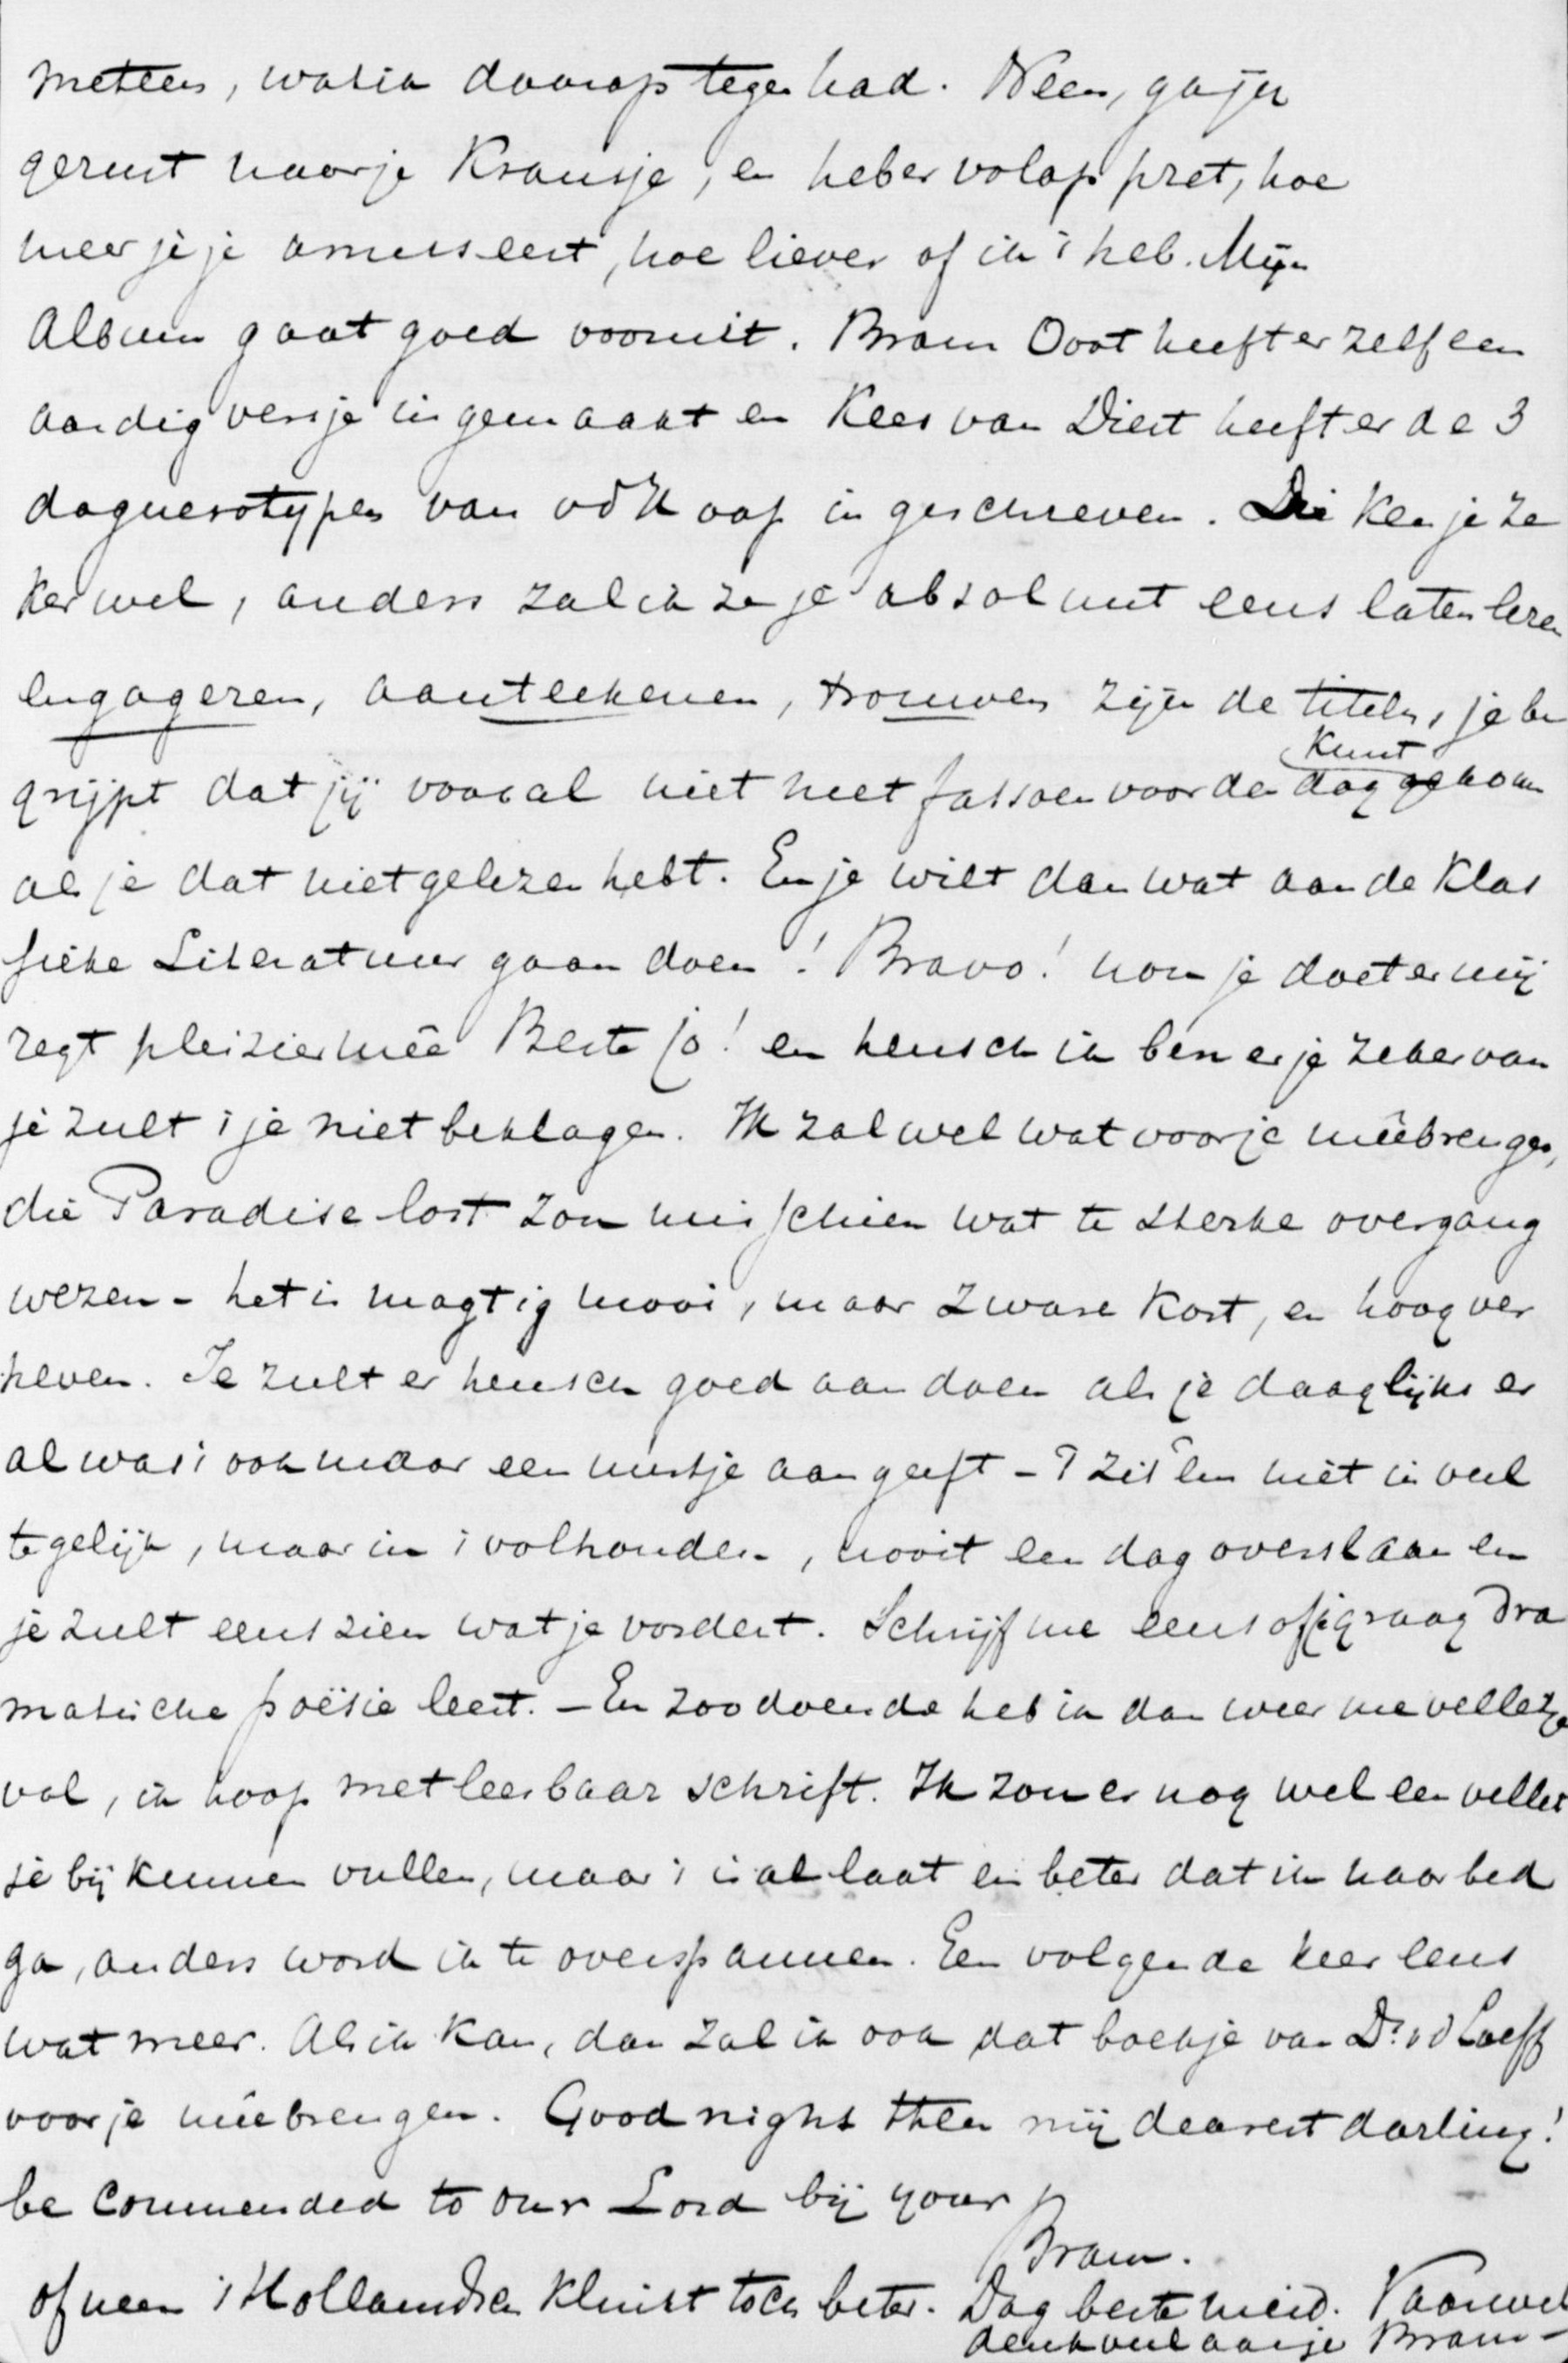 meteen, wat ik daarop tegen had. Neen, ga jij
gerust naar je Kransje, en heb er volop pret, hoe
meer je je amuseert, hoe liever of ik 't heb. Mijn
Album gaat goed vooruit. Bram Oort heeft er zelf een
aardig versje in gemaakt en Kees van Diest heeft er de 3
daguerotypes van vd Kaap in geschreven. Die ken je ze
ker wel, anders zal ik ze je absoluut eens laten lezen
engageren, aanteekenen, trouwen zijn de titels, je be
kunt
grijpt dat jij vooral niet met fatsoen voor den dag komen
als je dat niet gelezen hebt. En je wilt dan wat aan de Klas
sieke Literatuur gaan doen! Bravo! nou je doet er mij
regt pleizier meê Beste Jo! en heusch ik ben er je zeker van
je zult 't je niet beklagen. Ik zal wel wat voor je meêbrengen,
die Paradise lost zou misschien wat te sterke overgang
wezen - het is magtig mooi, maar zware kost, en hoog ver
heven. Je zult er heusch goed aan doen als je daaglijks er
al was 't ook maar een uurtje aan geeft - 't zit 'em niet in veel
tegelijk, maar in 't volhouden, nooit een dag overslaan en
je zult eens zien wat je vordert. Schrijf me eens of jij graag Dra
matische poësie leest. - En zoodoende heb ik dan weer me velletje
vol, ik hoop met leesbaar schrift. Ik zou er nog wel een vellet
je bij kunnen vullen, maar 't is al laat en beter dat ik naar bed
ga, anders word ik te overspannen. Een volgende keer eens
wat meer. Als ik kan, dan zal ik ook dat boekje van Dr. vd Loeff
voor je meêbrengen. Good night then mij dearest darling!
be commended to our Lord bij your
Bram.
of neen 't Hollandsch klinkt toch beter. Dag beste meid. Vaarwel
denk veel aan je Bram -